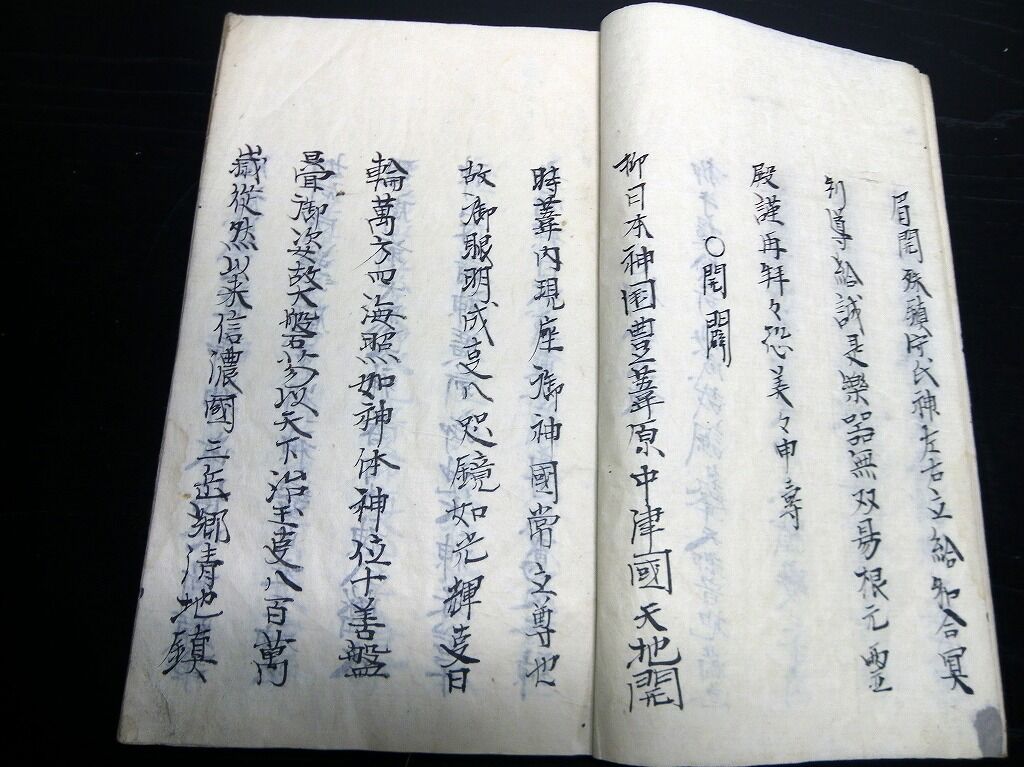 眉間殊頭氏神左右立給和合冥
利導給誠是樂器無双易根元霊
殿謹再拜々恐美々申寿
〇開闢
抑日本神国豊葦原中津國天地開
時葦内現座御神國常立尊也
故御眼明成事八咫鏡如光輝事日
輪萬方四海照如神体神位十善盤
畳御姿故大盤若以天下治玉事八百萬
嶽從然以来信濃國三岳郷清地鎮